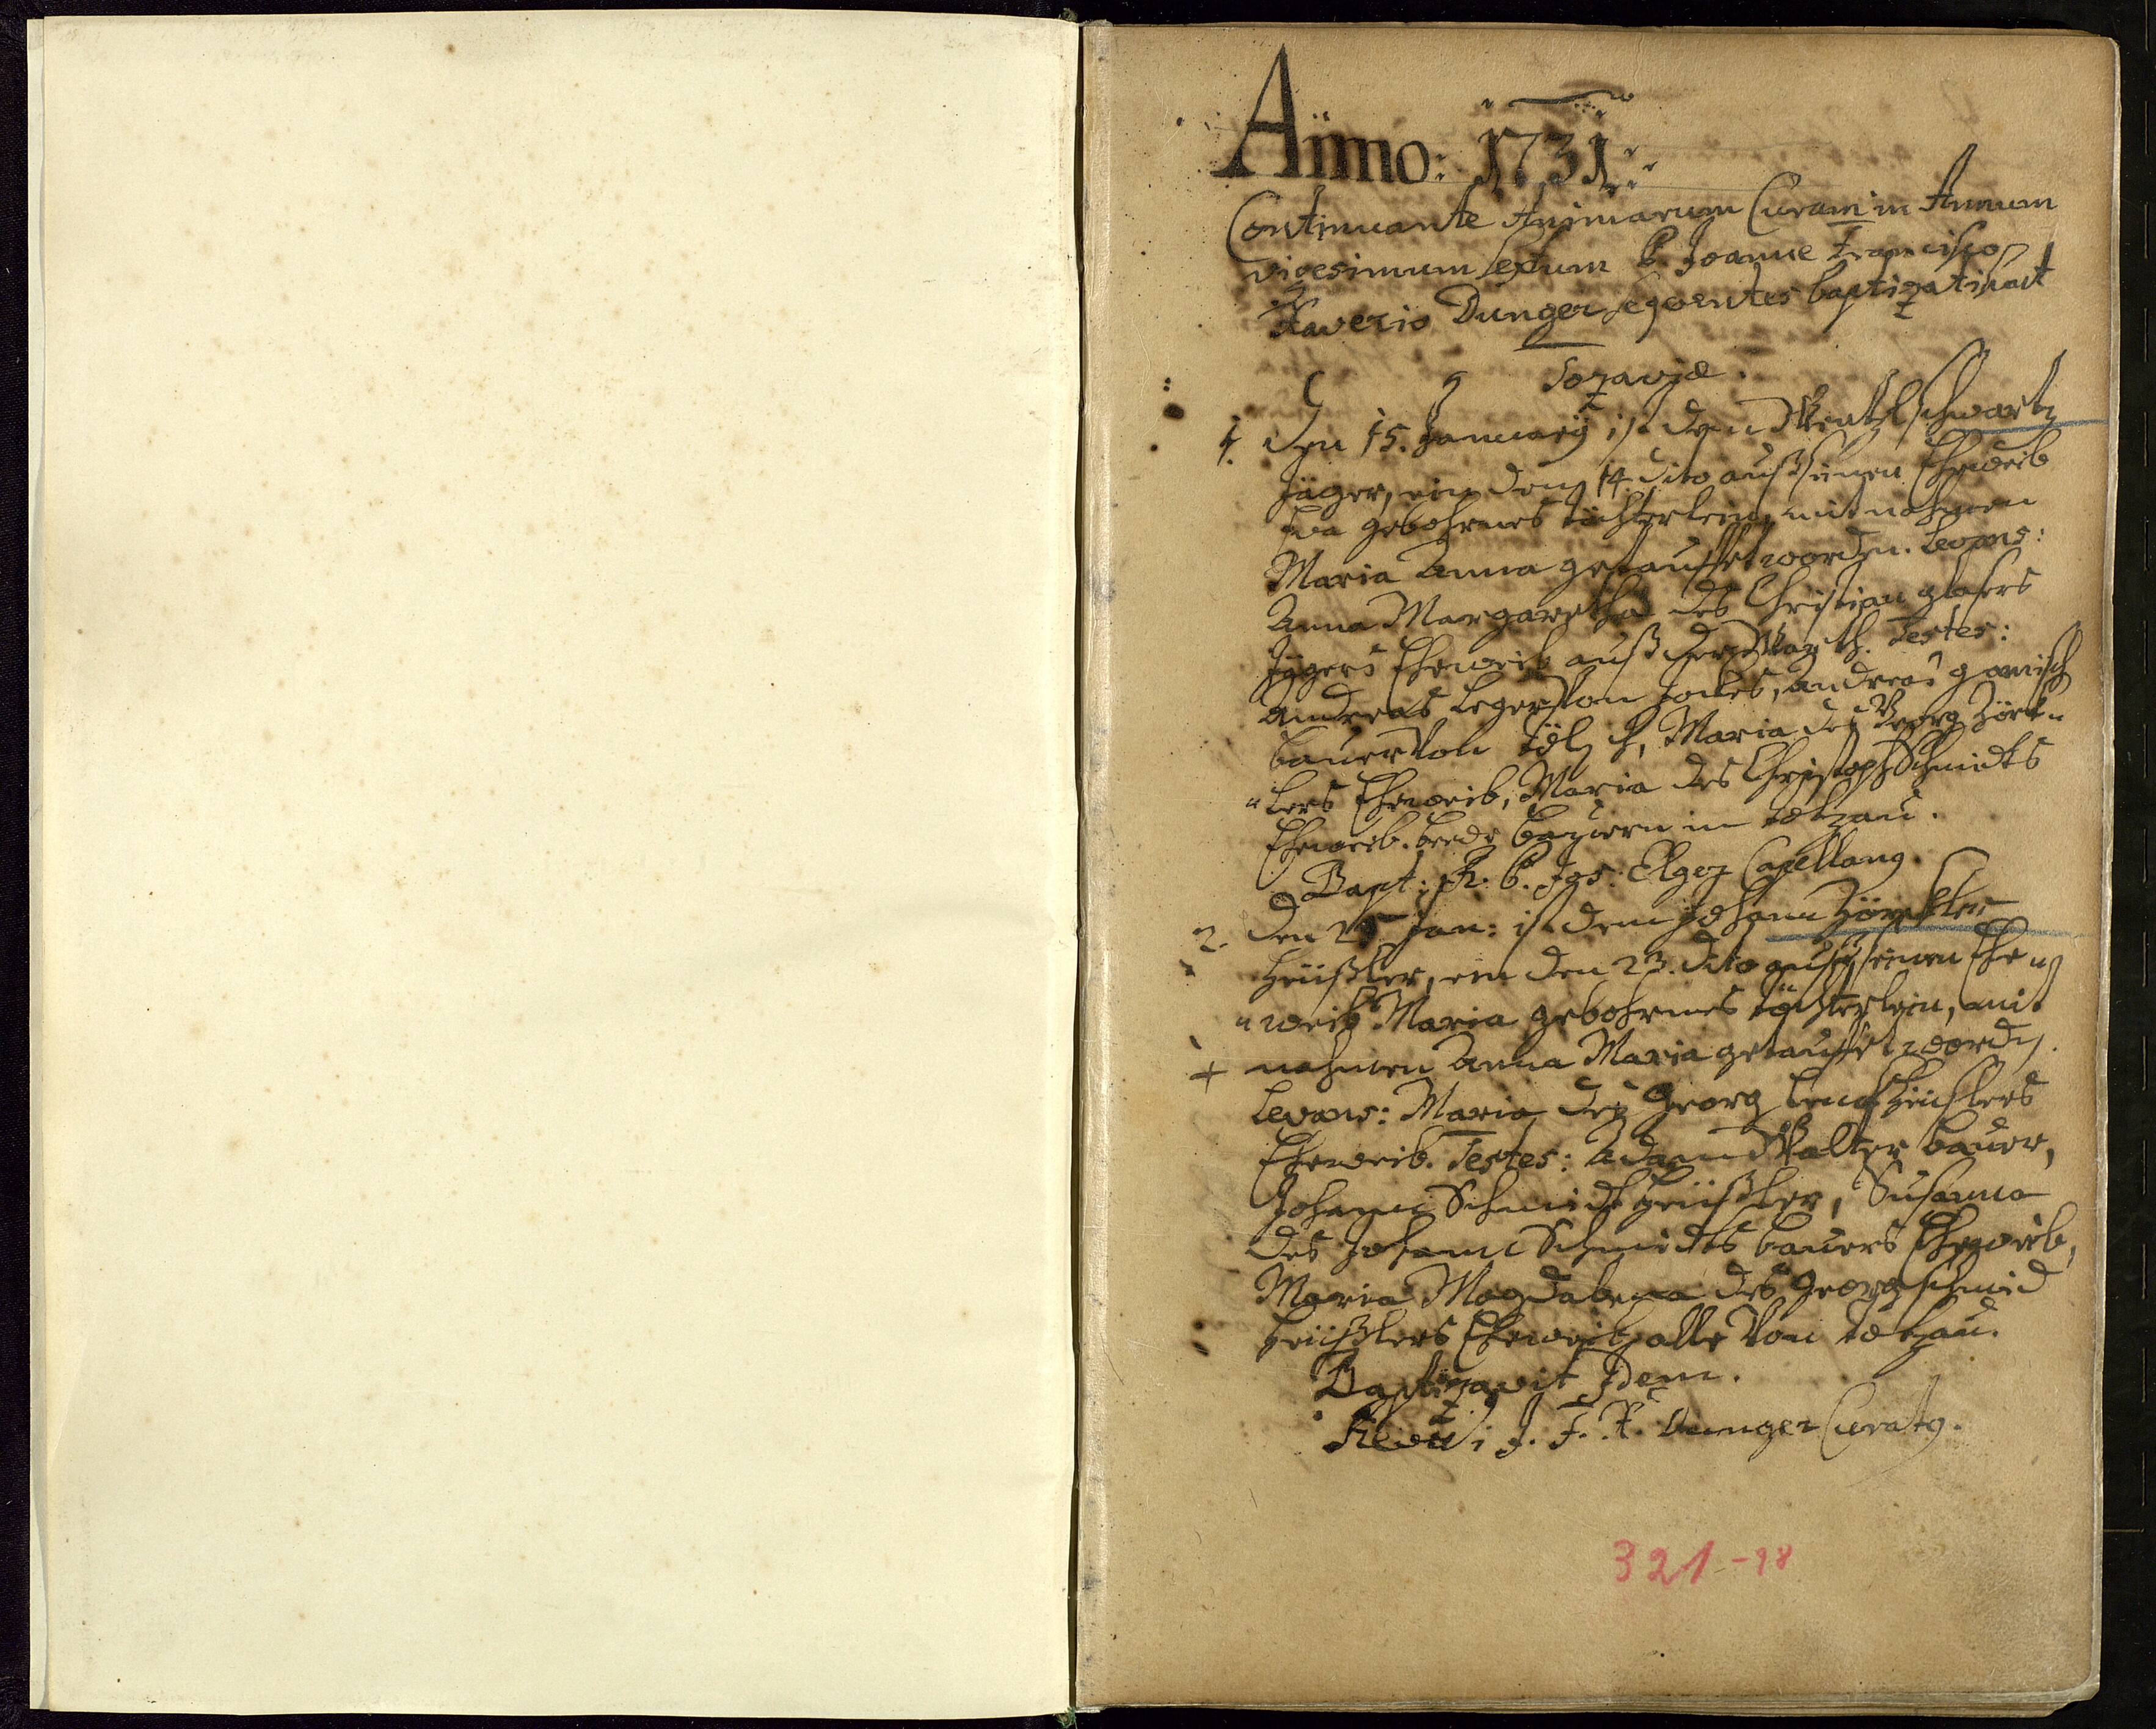 Anno: 1731
Continuante Animarum Curam in Annum
vigesimum sextum P. Joanne Francisco
Xaverio Dunger seqventes baptizati sunt
1. Den 15. January ist dem Wentzl Schwartz
Jäger, ein den 14. dito auß seinen Eheweib
Eva gebohrnes töchterlein, mit nahmen
Maria Anna getauffet worden. Levans:
Anna Margaretha des Christian glasers
Jägers Eheweib auß der Testes:
Andreas Leger Von Andreas
bauer Von Maria des Georg Zörk„
„lers Eheweib, Maria des Christoph Schmidts
Eheweib. beede bayern in
Bapt: R. P. Jos: Capellang.
2. Den 25 Jan: ist dem Johann Zörkler
Heüßler, ein den 23. dito auß seinen Ehe„
„weib Maria gebohrnes töchterlein, mit
+ nahmen Anna Maria getauffet worden.
Levans: Maria des Georg Heüslers
Eheweib. Testes: Adam Walter bauer,
Johann Schmidt Heüßler, Susanna
des Johann Schmidts bauers Eheweib,
Maria Magdalena des Georg Schmid
Heüßlers Eheweib, alle Von
Baptizavit Idem.
J. F. X. Dunger Curatg.
321-98